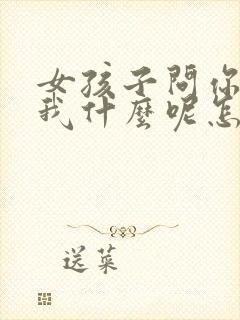 女孩子問你
我什麼呢怎
送菜